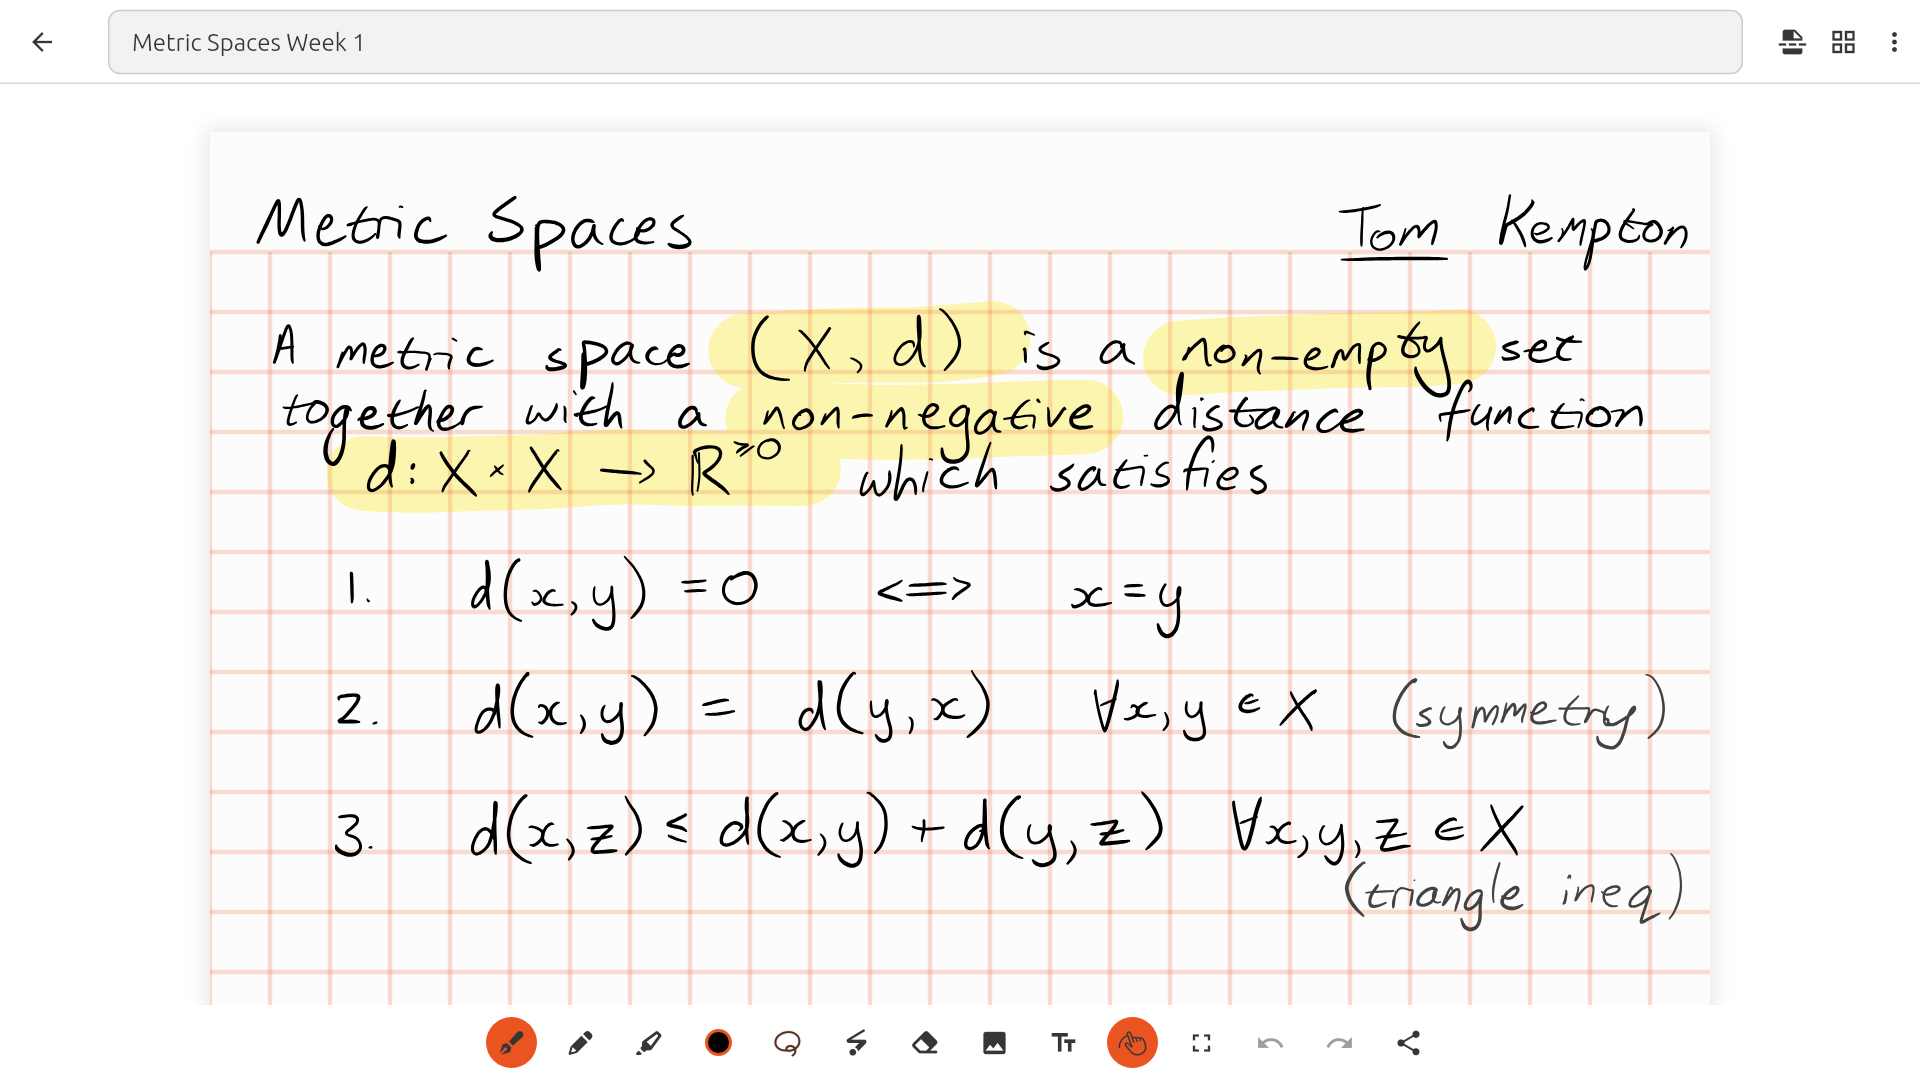 Metric Spaces Week 1
Metric Spaces Tom Kempton
A metric space (X, d) is a non-empty set
together with a non-negative distance function
d: X × X → ℝ^≥0 which satisfies
1. d(x,y) = 0 <=> x=y
2. d(x,y) = d(y,x) ∀x,y ∈ X (symmetry)
3. d(x,z) ≤ d(x,y) + d(y,z) ∀x,y,z ∈ X
(triangle ineq)
Tт